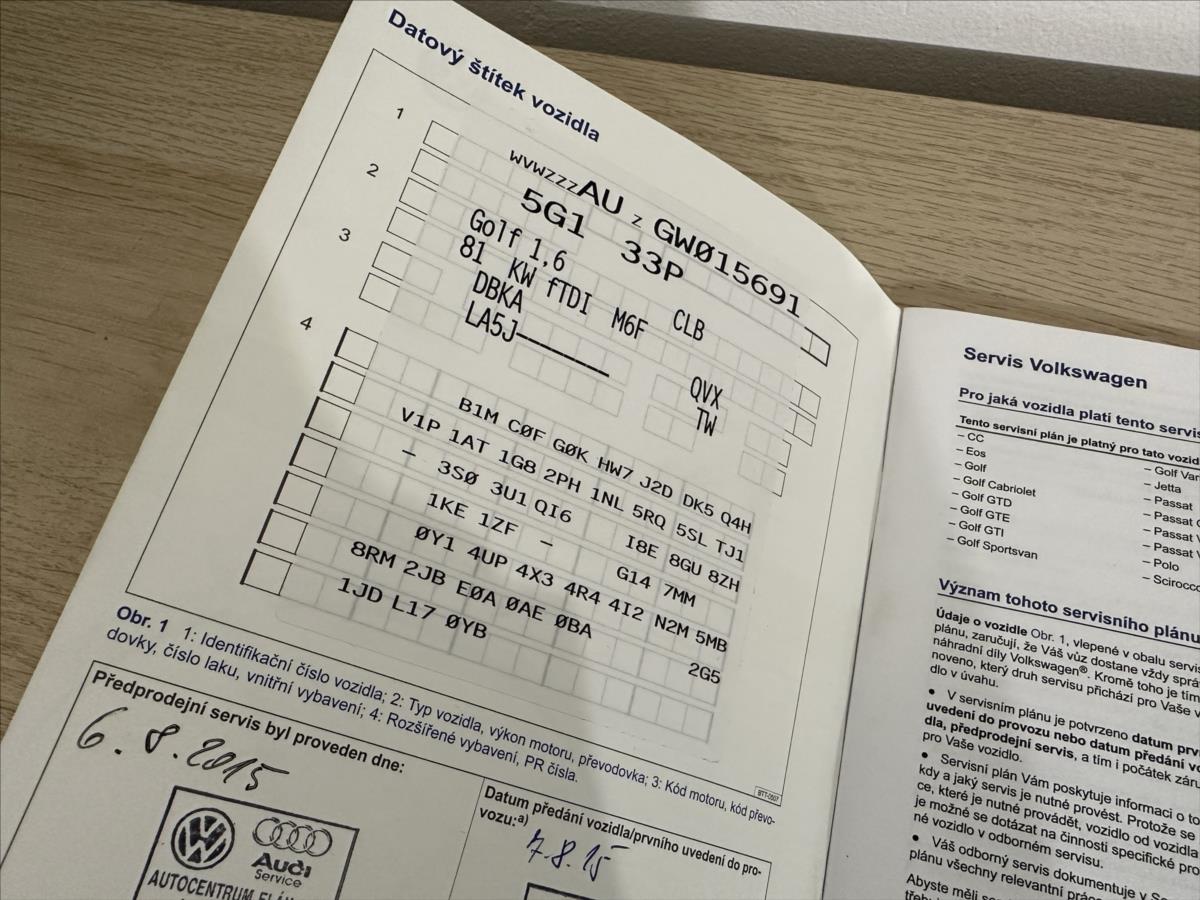 Datový štítek vozidla
1
2
3
4
WVWZZZAU Z GWØ15691
5G1 33P
Golf 1,6 CLB
81 KW fTDI M6F
DBKA QVX
LA5J TW
B1M CØF GØK HW7 J2D DK5 Q4H
V1P 1AT 1G8 2PH 1NL 5RQ 5SL TJ1
- 3SØ 3U1 QI6 I8E 8GU 8ZH
1KE 1ZF - G14 7MM
ØY1 4UP 4X3 4R4 4I2 N2M 5MB
8RM 2JB EØA ØAE ØBA
1JD L17 ØYB 2G5
BTT-0507
Obr. 1 1: Identifikační číslo vozidla; 2: Typ vozidla, výkon motoru, převodovka; 3: Kód motoru, kód převo-
dovky, číslo laku, vnitřní vybavení; 4: Rozšířené vybavení, PR čísla.
Předprodejní servis byl proveden dne:
6.8.2015
Audi
Service
AUTOCENTRUM
Datum předání vozidla/prvního uvedení do pro-
vozu:a)
7.8.15
Servis Volkswagen
Pro jaká vozidla platí tento
Tento servisní plán je platný pro tato
– CC
– Eos
– Golf
– Golf Cabriolet
– Golf GTD
– Golf GTE
– Golf GTI
– Golf Sportsvan
– Golf
– Jetta
– Passat
– Passat
– Passat
– Passat
– Polo
– Scirocco
Význam tohoto servisního plánu
Údaje o vozidle Obr. 1, vlepené v obalu
plánu, zaručují, že Váš vůz dostane vždy
náhradní díly Volkswagen®. Kromě toho je
noveno, který druh servisu přichází pro Vaše
dlo v úvahu.
• V servisním plánu je potvrzeno datum
uvedení do provozu nebo datum předání
dla, předprodejní servis, a tím i počátek
pro Vaše vozidlo.
• Servisní plán Vám poskytuje informaci o
kdy a jaký servis je nutné provést. Protože se
ce, které je nutné provádět, vozidlo od vozidla
je možné se dotázat na činnosti specifické pro
né vozidlo v odborném servisu.
• Váš odborný servis dokumentuje v
plánu všechny relevantní
Abyste měli